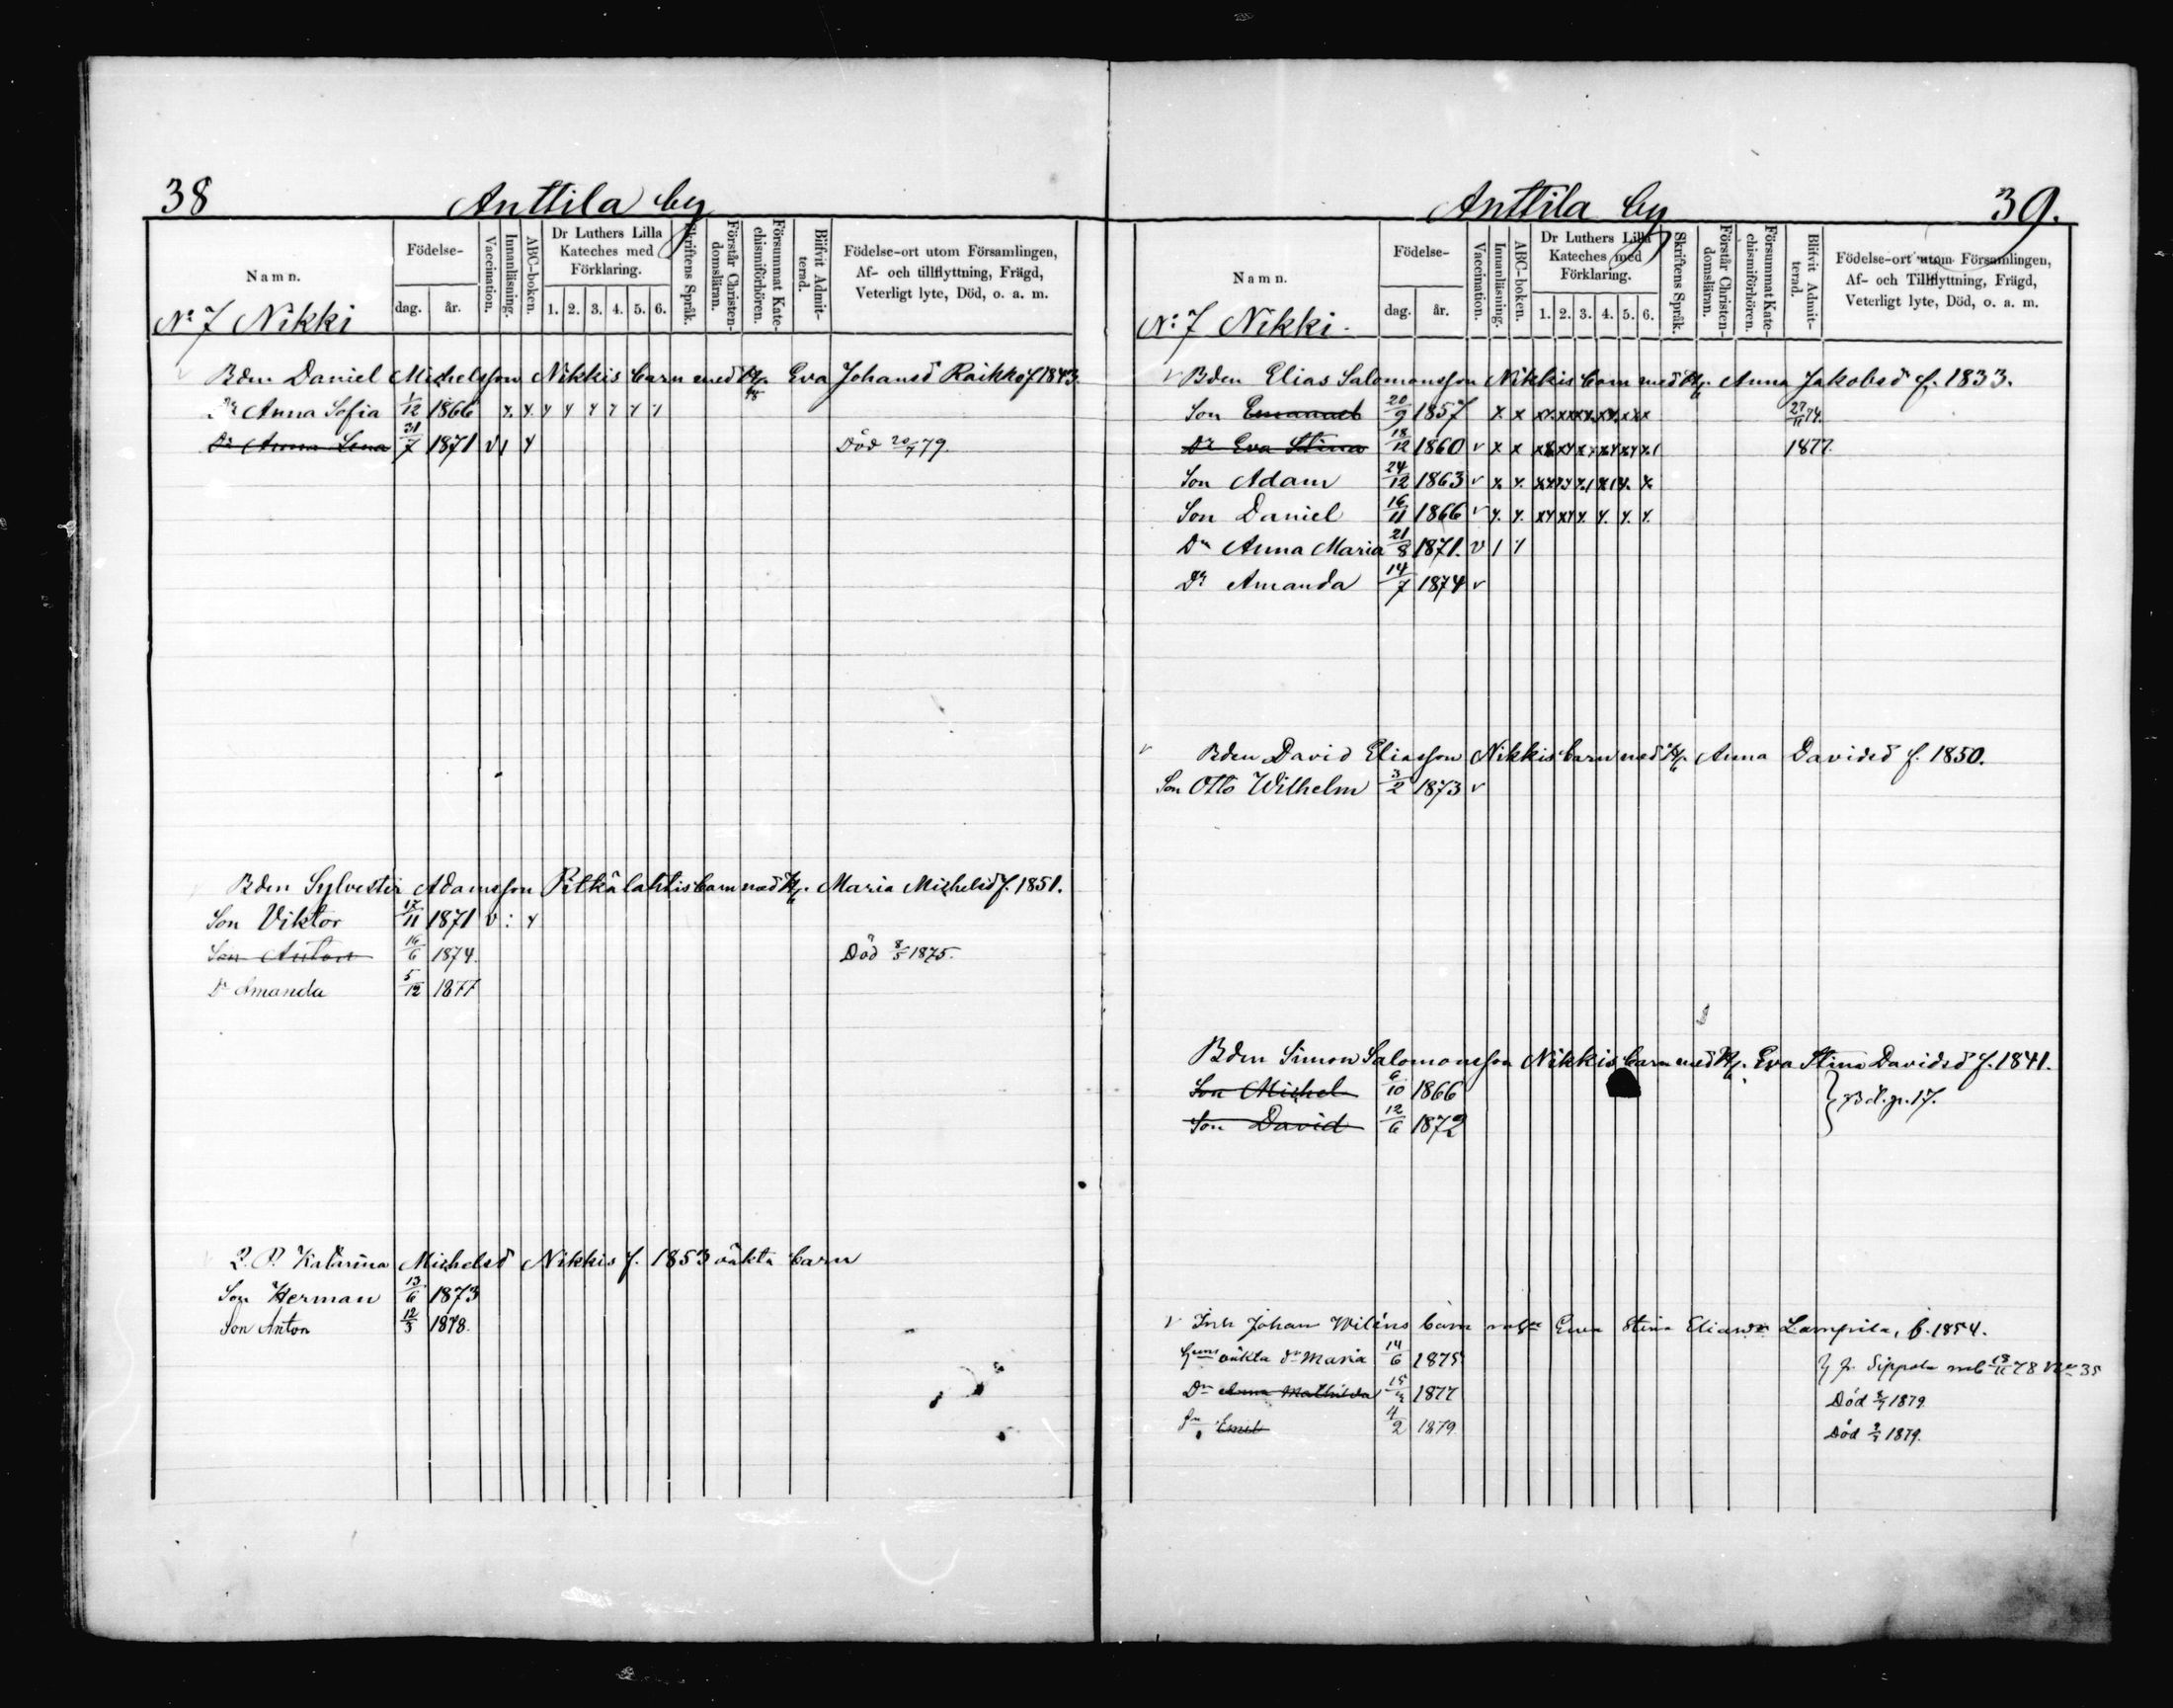 38 Anttila by
Namn. Födelse- dag. år. Vaccination. Innanläsning. ABC-boken. Dr Luthers Lilla Kateches med Förklaring. 1. 2. 3. 4. 5. 6. Skriftens Språk. Förstår Christendomsläran. Försummat Katechismiförhören. Blifvit Admitterad. Födelse-ort utom Församlingen, Af- och tillflyttning, Frägd, Veterligt lyte, Död, o. a. m.
No 7 Nikki
Bden Daniel Michelsson Nikkis barn med H. Eva Johansd Raikko f 1843.
Dr Anna Sofia 1/12 1866
Dr Anna Lena 31/7 1871 v Död 79.
Bden Sylvester Adamsson Pitkälahtis barn med H. Maria Michelsd f. 1851.
Son Viktor 17/11 1871 v
Son Anton 16/6 1874. Död 8/5 1875.
Dr Amanda 5/12 1877
Katarina Michelsd Nikkis f. 1853 oäkta barn
Son Herman 13/6 1873
Son Anton 12/3 1878.
Anttila by 39.
Namn. Födelse- dag. år. Vaccination. Innanläsning. ABC-boken. Dr Luthers Lilla Kateches med Förklaring. 1. 2. 3. 4. 5. 6. Skriftens Språk. Förstår Christendomsläran. Försummat Katechismiförhören. Blifvit Admitterad. Födelse-ort utom Församlingen, Af- och Tillflyttning, Frägd, Veterligt lyte, Död, o. a. m.
No 7 Nikki.
v Bden Elias Salomonsson Nikkis barn med H. Anna Jakobsd f. 1833.
Son Emanuel 20/9 1857 x x 27/11 74.
Dr Eva Stina 18/12 1860 v x x 1877.
Son Adam 24/12 1863 v
Son Daniel 16/11 1866 v
Dr Anna Maria 21/8 1871. v
Dr Amanda 14/7 1874 v
v Bden David Eliasson Nikkis barn med H. Anna Davidsd f. 1850.
Son Otto Wilhelm 3/2 1873 v
Bden Simon Salomonsson Nikkis barn med H. Eva Stina Davidsd f. 1841.
Son Michel 6/10 1866 } p. 17.
Son David 12/6 1872
v Inh Johan Wiléns barn Stina Eliasd f. 1854.
oäkta dr Maria 14/6 1875 Sippola 78 35
Dr Anna Mathilda 1877 Död 1879
Emil 4/2 1879 Död 1879.